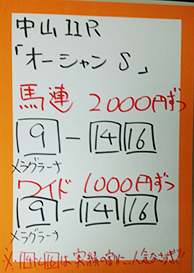 中山11R
「オーシャンS」
馬連 2000円ずつ
9-14 16
メラグラーナ
ワイド 1000円ずつ
9-14 16
メラグラーナ
※14と16は実績の割に人気